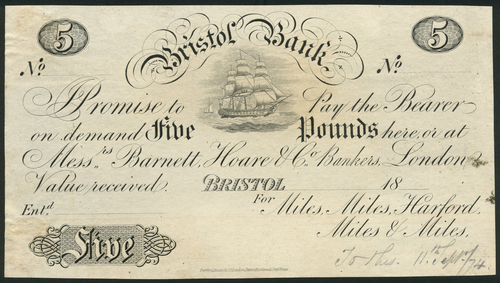 5 Bristol Bank 5
No No
I Promise to Pay the Bearer
on demand Five Pounds here, or at
Mess.rs Barnett, Hoare & Co. Bankers, London
Value received. BRISTOL 18
Ent.d For Miles, Miles, Harford,
Five Miles & Miles.
11th Sept. /74